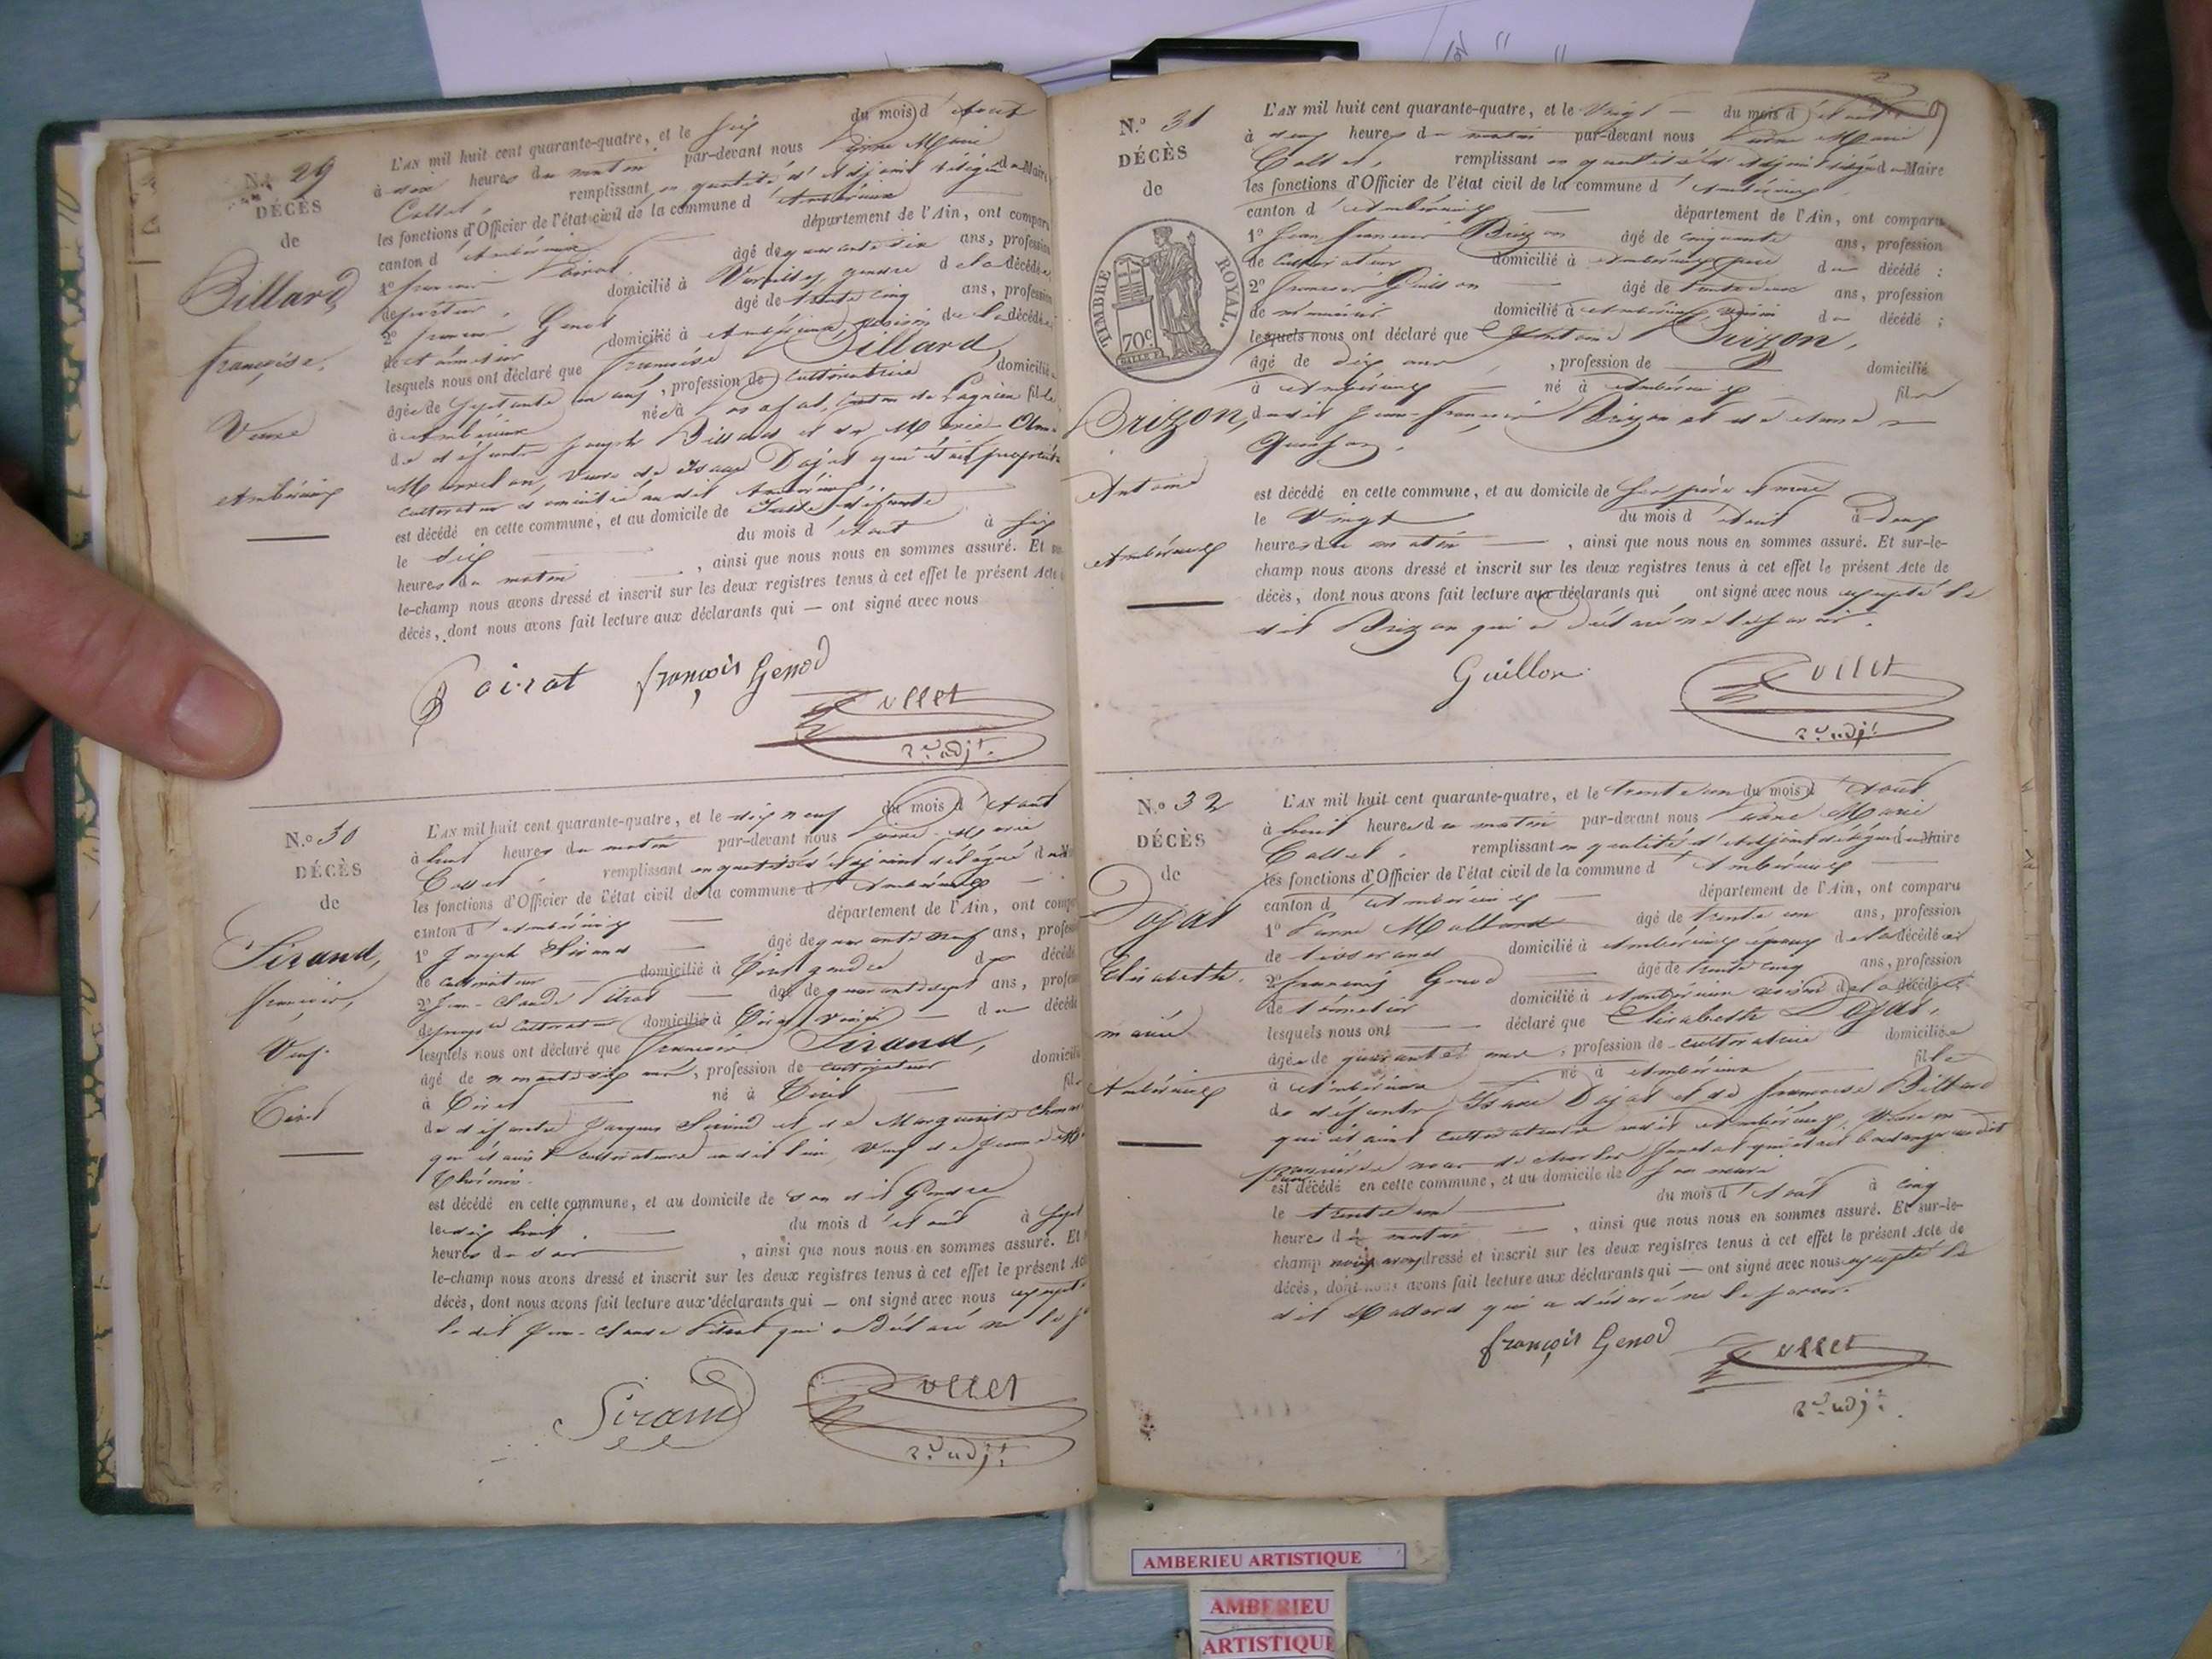 N.º 29
DÉCÈS
de
Billard,
françoise,
Veuve
Ambérieux
L'AN mil huit cent quarante-quatre, et le six du mois d'Aout
à dix heures du matin par-devant nous Pierre Marie
Collet, remplissant en qualité d'Adjoint délégué du Maire
les fonctions d'Officier de l'état civil de la commune d'Ambérieux
canton d'Ambérieux département de l'Ain, ont comparu
1º françois Poirat âgé de quarante six ans, profession
de domicilié à gendre de la décédée
2º françois Genod âgé de trente cinq ans, profession
de domicilié à Ambérieux, voisin de la décédée
lesquels nous ont déclaré que françoise Billard
âgée de septante un ans, profession de cultivatrice domiciliée
à Ambérieux née à fille
de défunts Joseph Billard et de Marie
veuve de Isaac Dojat qui était
cultivateur domicilié audit Ambérieux
est décédé en cette commune, et au domicile de défunte
le six du mois d'Aout à six
heures du matin, ainsi que nous nous en sommes assuré. Et sur-
le-champ nous avons dressé et inscrit sur les deux registres tenus à cet effet le présent Acte
décès, dont nous avons fait lecture aux déclarants qui — ont signé avec nous
Poirat françois Genod
Collet
2e adjt.
N.º 30
DÉCÈS
de
Sirand,
françois,
Veuf
Tiret
L'AN mil huit cent quarante-quatre, et le dix neuf du mois d'Aout
à huit heures du matin par-devant nous Pierre Marie
Collet, remplissant en qualité d'adjoint délégué du
les fonctions d'Officier de l'état civil de la commune d'Ambérieux
canton d'Ambérieux département de l'Ain, ont comparu
1º Joseph Sirand âgé de quarante neuf ans, profession
de cultivateur domicilié à Tiret gendre du décédé
2º Jean-Claude Pitrat âgé de quarante sept ans, profession
de cultivateur domicilié à Tiret, voisin du décédé
lesquels nous ont déclaré que françois Sirand,
âgé de nonante six ans, profession de cultivateur domicilié
à Tiret né à Tiret fils
de défunts Jacques Sirand et de Marguerite
qui étaient cultivateurs audit lieu, veuf de Jeanne
est décédé en cette commune, et au domicile de son dit Gendre
le dix huit du mois d'Aout à sept
heures du soir, ainsi que nous nous en sommes assuré. Et
le-champ nous avons dressé et inscrit sur les deux registres tenus à cet effet le présent
décès, dont nous avons fait lecture aux déclarants qui — ont signé avec nous excepté
le dit Jean-Claude Pitrat qui a déclaré ne le
Sirand
Collet
2e adjt.
9
N.º 31
DÉCÈS
de
TIMBRE ROYAL.
70c.
Brizon,
Antoine
Ambérieux
L'AN mil huit cent quarante-quatre, et le Vingt du mois d'Aout
à deux heures du matin par-devant nous Pierre Marie
Collet, remplissant en qualité d'Adjoint délégué du Maire
les fonctions d'Officier de l'état civil de la commune d'Ambérieux
canton d'Ambérieux département de l'Ain, ont comparu
1º Jean françois Brizon âgé de cinquante ans, profession
de cultivateur domicilié à Ambérieux, père du décédé :
2º françois Guillon âgé de trente deux ans, profession
de menuisier domicilié à Ambérieux, voisin du décédé ;
lesquels nous ont déclaré que Antoine Brizon,
âgé de dix ans, profession de domicilié
à Ambérieux né à Ambérieux fils
dudit Jean-françois Brizon et de
est décédé en cette commune, et au domicile de ses père et mère
le Vingt du mois d'Aout à deux
heures du matin, ainsi que nous nous en sommes assuré. Et sur-le-
champ nous avons dressé et inscrit sur les deux registres tenus à cet effet le présent Acte de
décès, dont nous avons fait lecture aux déclarants qui ont signé avec nous excepté le
dit Brizon qui a déclaré ne le savoir.
Guillon
Collet
2e adjt.
N.º 32
DÉCÈS
de
Dojat
Elisabeth,
mariée
Ambérieux
L'AN mil huit cent quarante-quatre, et le trente un du mois d'Aout
à huit heures du matin par-devant nous Pierre Marie
Collet, remplissant en qualité d'Adjoint délégué du Maire
les fonctions d'Officier de l'état civil de la commune d'Ambérieux
canton d'Ambérieux département de l'Ain, ont comparu
1º Pierre Mallard âgé de trente un ans, profession
de tisserand domicilié à Ambérieux époux de la décédée
2º françois Genod âgé de trente cinq ans, profession
de domicilié à Ambérieux voisin de la décédée
lesquels nous ont déclaré que Elisabeth Dojat,
âgée de quarante ans, profession de cultivatrice domiciliée
à Ambérieux né à Ambérieux fille
de défunts Isaac Dojat et de françoise Billard
qui étaient cultivateurs audit Ambérieux, Veuve en
premières noces de Charles qui était boulanger audit
lieu
est décédé en cette commune, et au domicile de son mari
le trente un du mois d'Aout à cinq
heures du matin, ainsi que nous nous en sommes assuré. Et sur-le-
champ nous avons dressé et inscrit sur les deux registres tenus à cet effet le présent Acte de
décès, dont nous avons fait lecture aux déclarants qui — ont signé avec nous excepté le
dit Mallard qui a déclaré ne le savoir.
françois Genod
Collet
2e adjt.
AMBERIEU ARTISTIQUE
AMBERIEU
ARTISTIQUE